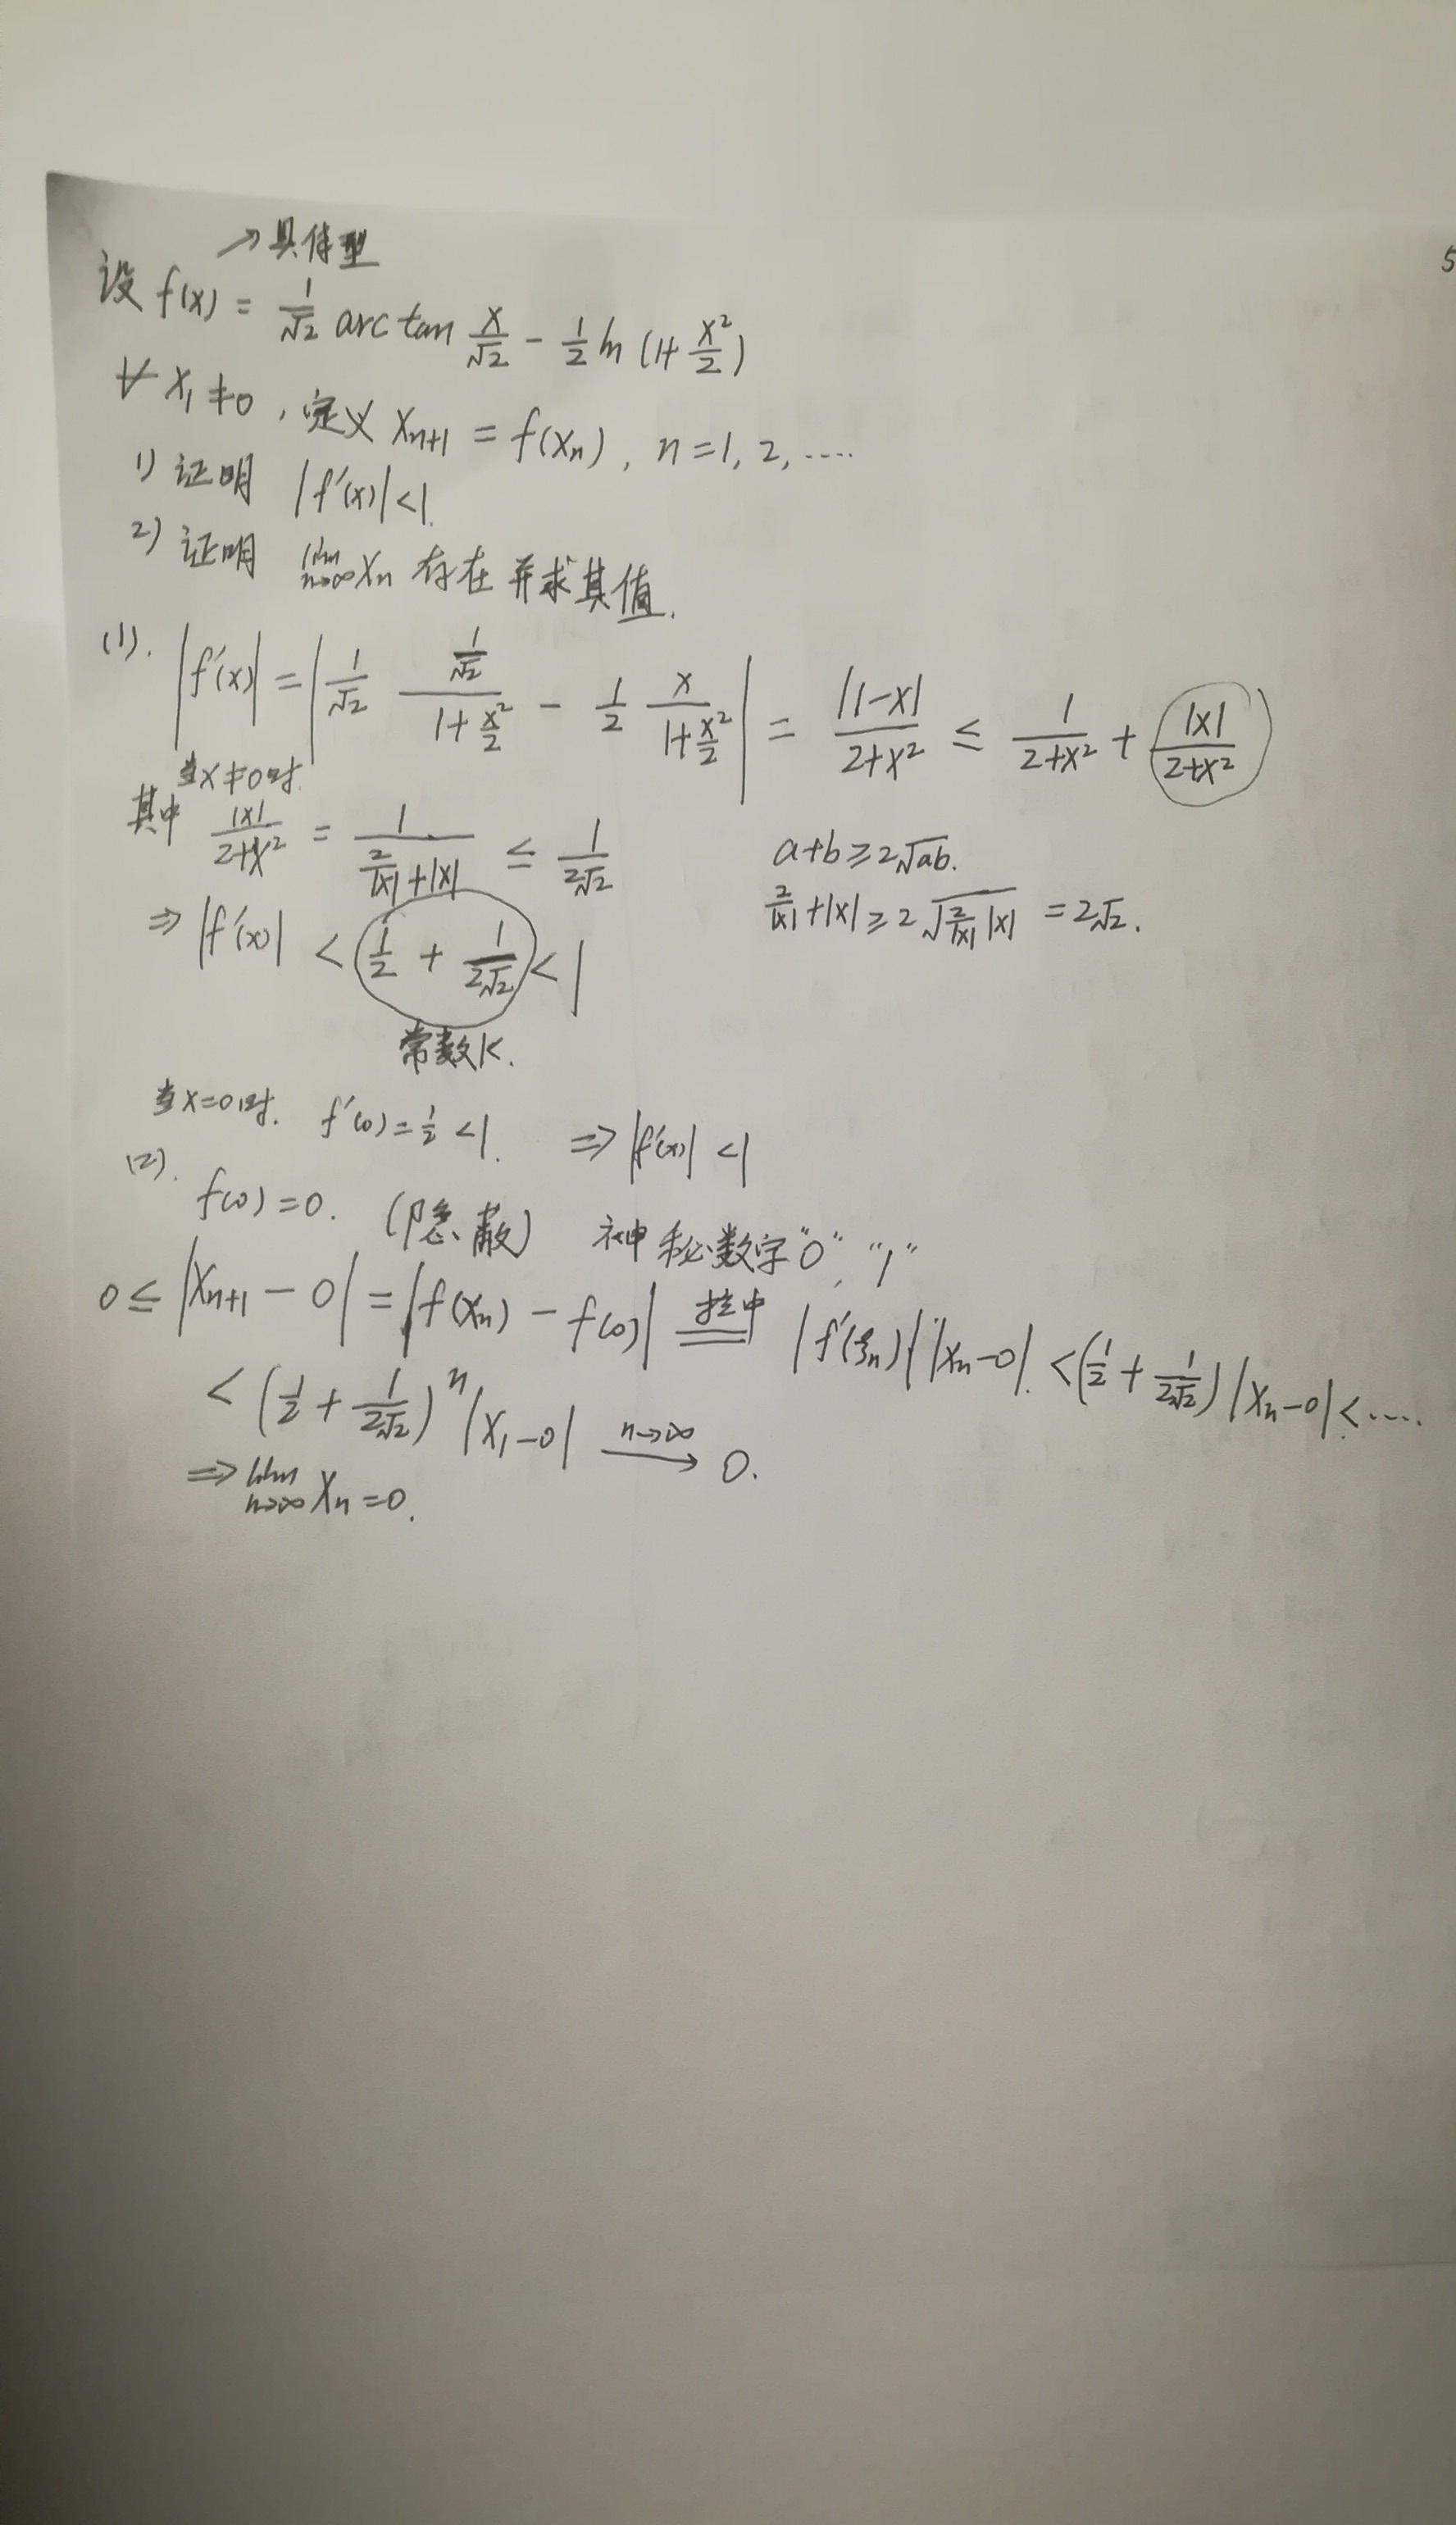 →具体型
5
设 f(x) = 1/√2 arctan x/√2 - 1/2 ln (1+ x²/2)
∀ x₁≠0, 定义 xₙ₊₁ = f(xₙ), n=1, 2, ....
1) 证明 |f'(x)|<1.
2) 证明 lim n→∞ xₙ 存在并求其值.
(1). |f'(x)| = |1/√2 (1/√2)/(1+x²/2) - 1/2 x/(1+x²/2)| = |1-x|/(2+x²) ≤ 1/(2+x²) + |x|/(2+x²)
当x≠0时.
其中 |x|/(2+x²) = 1/(2/|x|+|x|) ≤ 1/(2√2) a+b≥2√ab.
⇒ |f'(x)| < 1/2 + 1/(2√2) < 1 2/|x|+|x| ≥ 2√(2/|x| |x|) = 2√2.
常数K.
当x=0时. f'(0)=1/2 <1. ⇒ |f'(x)| <1
(2). f(0)=0. (隐蔽) 神秘数字"0", "1"
0≤ |xₙ₊₁ - 0| = |f(xₙ) - f(0)| 拉中== |f'(ξₙ)| |xₙ-0| <(1/2 + 1/(2√2)) |xₙ-0| <....
< (1/2 + 1/(2√2))ⁿ |x₁-0| n→∞→ 0.
⇒ lim n→∞ xₙ=0.